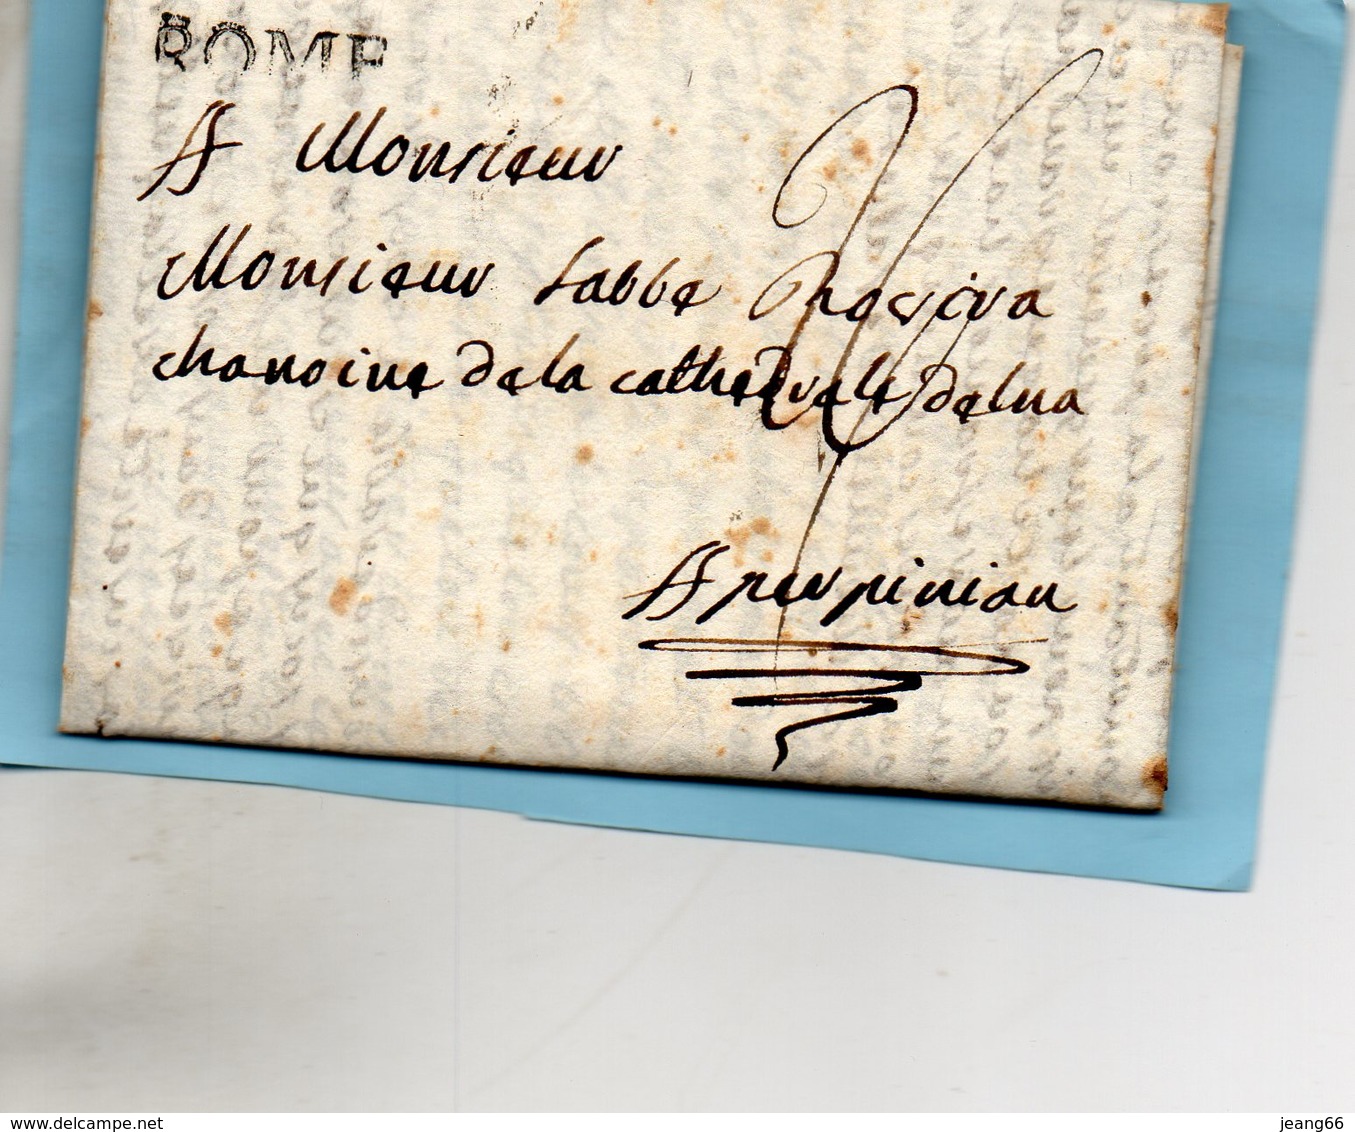 ROME
A Monsieur
Monsieur Labbe
chanoine de la cathedrale delna
A perpinian
www.delcampe.net
jeang66